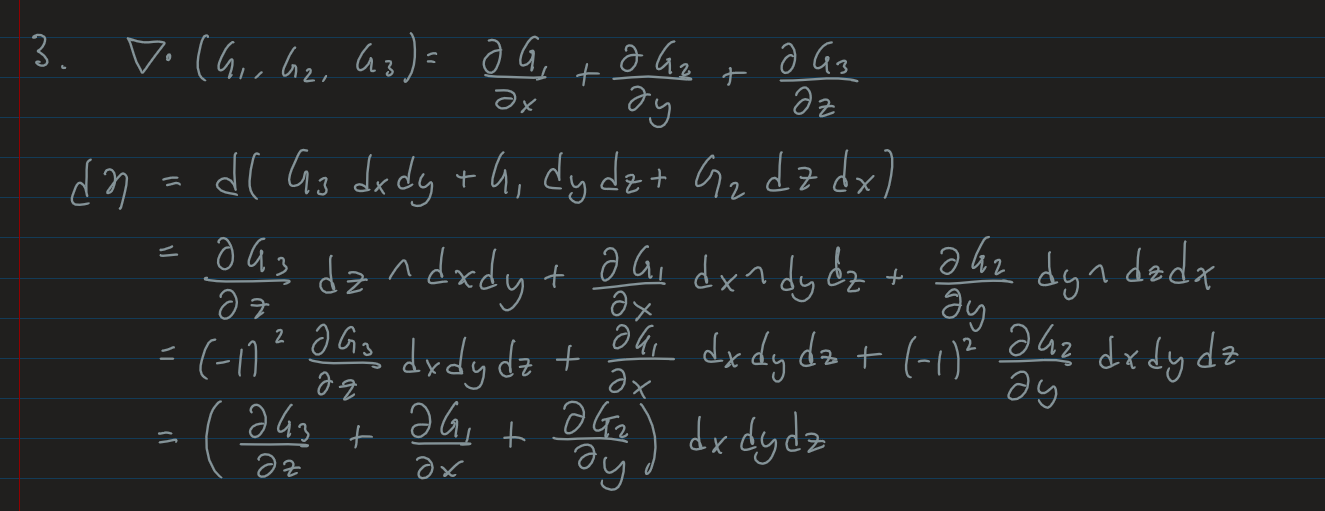 3. ∇· (G₁, G₂, G₃) = ∂G₁/∂x + ∂G₂/∂y + ∂G₃/∂z
dη = d( G₃ dxdy + G₁ dy dz + G₂ dz dx)
= ∂G₃/∂z dz ∧ dxdy + ∂G₁/∂x dx ∧ dy dz + ∂G₂/∂y dy ∧ dzdx
= (-1)² ∂G₃/∂z dxdydz + ∂G₁/∂x dxdydz + (-1)² ∂G₂/∂y dxdydz
= ( ∂G₃/∂z + ∂G₁/∂x + ∂G₂/∂y ) dxdydz